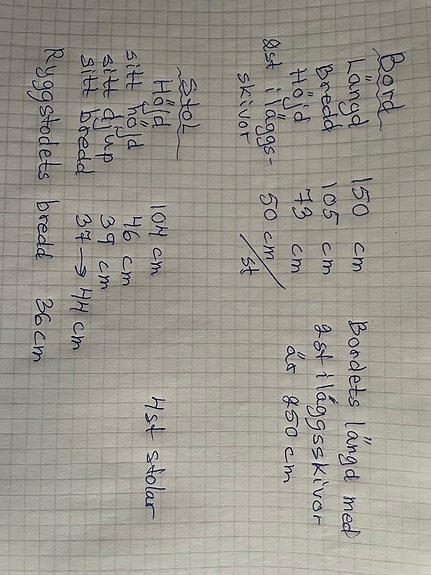 Bord
Längd 150 cm
Bredd 105 cm
Höjd 73 cm
2st iläggs-
skivor 50 cm/st
Bordets längd med
2st iläggsskivor
är 250 cm
Stol
Höjd 104 cm
sitt höjd 46 cm
sitt djup 39 cm
sitt bredd 37 → 44 cm
Ryggstödets bredd 36 cm
4st stolar